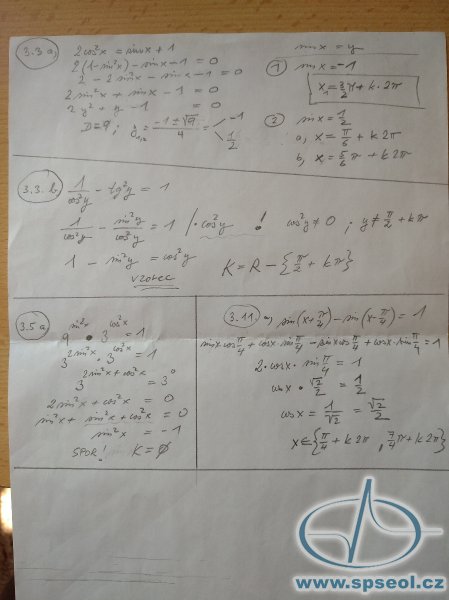 3.3 a) 2cos²x = sinx + 1
2(1-sin²x) - sinx - 1 = 0
2 - 2sin²x - sinx - 1 = 0
2sin²x + sinx - 1 = 0
2y² + y - 1 = 0
D = 9; y₁,₂ = (-1 ± √9)/4 = -1
1/2
sinx = y
① sinx = -1
x₁ = 3/2 π + k·2π
② sinx = 1/2
a, x = π/6 + k2π
b, x = 5/6 π + k2π
3.3. b 1/cos²y - tg²y = 1
1/cos²y - sin²y/cos²y = 1 /·cos²y ! cos²y ≠ 0 ; y ≠ π/2 + kπ
1 - sin²y = cos²y
VZOREC
K = R - {π/2 + kπ}
3.5 a
9^(sin²x) · 3^(cos²x) = 1
3^(2sin²x) · 3^(cos²x) = 1
3^(2sin²x + cos²x) = 3⁰
2sin²x + cos²x = 0
sin²x + sin²x + cos²x = 0
sin²x = -1
SPOR! K = ∅
3.11 a, sin(x+π/4) - sin(x-π/4) = 1
sinx·cos π/4 + cosx·sin π/4 - sinx cos π/4 + cosx·sin π/4 = 1
2·cosx·sin π/4 = 1
cosx·√2/2 = 1/2
cosx = 1/√2 = √2/2
x∈{π/4 + k2π, 7/4 π + k2π}
www.spseol.cz